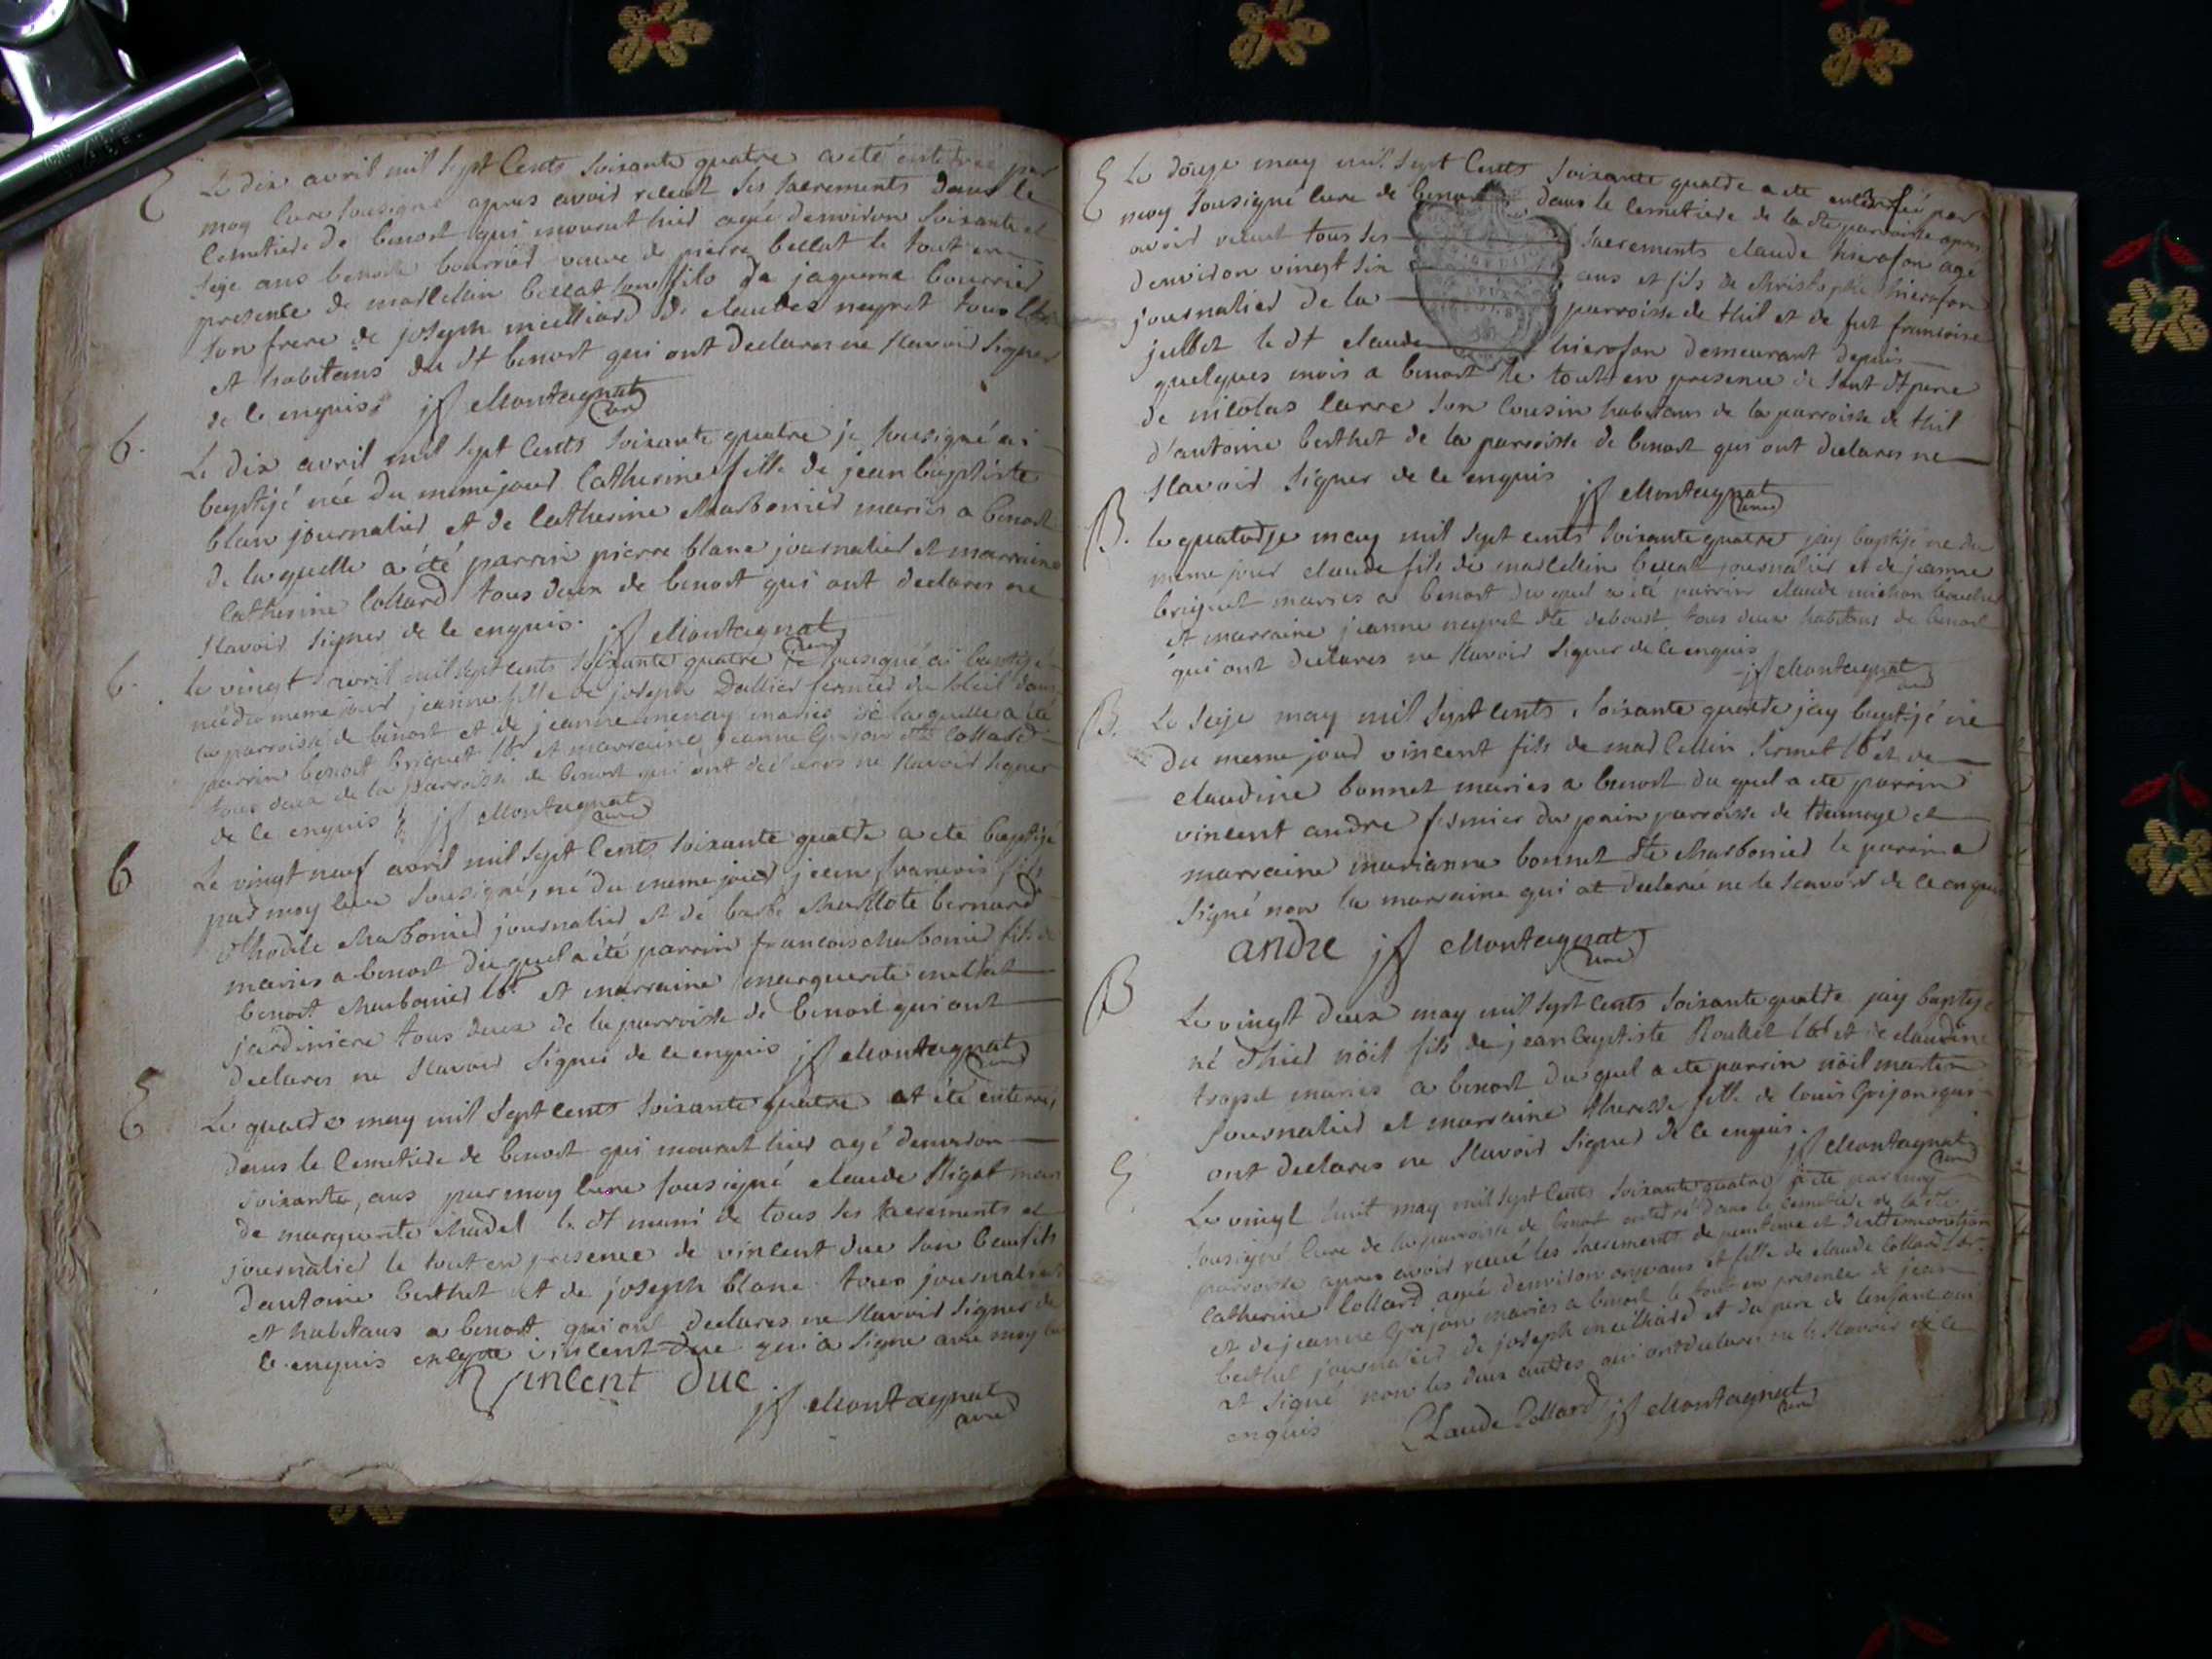 Le dix avril mil sept cents soixante quatre a eté enterree par
moy curé sousigné apres avoir recut ses sacrements dans le
cemetiere de benost qui mourut hier agée d'environ soixante et
seze ans benoite bourrier veuve de pierre bellat le tout en
presence de marcellin bellat son fils de jaqueme bourrier
son frere de joseph milliard de claude neyret tous
et habitans du dt benost qui ont declares ne scavoir signer
de ce enquis jf Montagnat
curé
6. Le dix avril mil sept cents soixante quatre je sousigné ai
baptizé née du meme jour Catherine fille de jean baptiste
blan journalier et de Catherine Charbonier mariés a benost
de laquelle a été parrin pierre blanc journalier et marraine
Catherine Collard tous deux de benost qui ont declares ne
scavoir signer de ce enquis. jf Montagnat
curé
6. le vingt avril mil sept cents soixante quatre je sousigné ai baptizé
née du meme jour jeanne fille de joseph Dallier fermier du soleil dans
la parroisse de benost et de jeanne menay mariés de laquelle a été
parrin benoit briquet lbr et marraine jeanne Grijon dte Collard
tous deux de la parroisse de benost qui ont declares ne scavoir signer
de ce enquis jf Montagnat
curé
6 Le vingt neuf avril mil sept cents soixante quatre a eté baptizé
par moy curé sousigné, né du meme jour jean francois fils
Charbonier journalier et de barbe Charlote bernard
mariés a benost du quel a été parrin francois charbonier fils de
benoit charbonier lbr et marraine marguerite
jardiniere tous deux de la parroisse de benost qui ont
declares ne scavoir signer de ce enquis jf Montagnat
curé
Le quatre may mil sept cents soixante quatre at été enterré,
dans le cemetiere de benost qui mourut hier agé d'environ
soixante, ans par moy curé sousigné claude Rigot mari
de marguerite le dt muni de tous ses sacrements et
journalier le tout en presence de vincent duc son beaufils
d'antoine berthet et de joseph blanc tous journaliers
et habitans a benost qui ont declares ne scavoir signer de
ce enquis excepte vincent duc qui a signe avec moy
Vincent duc
jf Montagnat
curé
Le douze may mil sept cents soixante quatre a eté enterré par
moy sousigné curé de benost dans le cemetiere de la dte parroisse apres
avoir recut tous ses sacrements claude hierofon agé
d'environ vingt six ans et fils de christophe hierofon
journalier de la parroisse de thil et de fut francoise
jullet le dt claude hierofon demeurant depuis
quelques mois a benost le tout en presence de sont dt pere
de nicolas carre son cousin habitans de la parroisse de thil
d'antoine berthet de la parroisse de benost qui ont declares ne
scavoir signer de ce enquis jf Montagnat
curé
B. le quatorze may mil sept cents soixante quatre jay baptizé ne du
meme jour claude fils de marcellin bellat journalier et de jeanne
briquet mariés a benost du quel a été parrin claude michon
et marraine jeanne neyret dte deboust tous deux habitans de benost
qui ont declares ne scavoir signer de ce enquis
jf Montagnat
curé
B. Le seize may mil sept cents soixante quatre jay baptizé né
du meme jour vincent fils de marcellin lbr et de
claudine bonnet mariés a benost du quel a ete parrin
vincent andre fermier du pain parroisse de tramoye et
marraine marianne bonnet dte charbonier le parrin a
signé non la marraine qui at declaré ne le scavoir de ce enquis
andre jf Montagnat
curé
B Le vingt deux may mil sept cents soixante quatre jay baptizé
né d'hier nöil fils de jean baptiste Roullet lbr et de claudine
tropet mariés a benost du quel a ete parrin nöil martin
journalier et marraine therese fille de louis Grijon qui
ont declares ne scavoir signer de ce enquis.
jf Montagnat
curé
Le vingt huit may mil sept cents soixante quatre a ete par moy
sousigné curé de la parroisse de benost enterré dans le cemetiere de la dte
parroisse apres avoir recu les sacrements de penitence et d'extremonction
catherine Collard agée d'environ onze ans et fille de claude Collard lbr
et de jeanne Grijon mariés a benost le tout en presence de jean
berthet journalier de joseph milliard et du pere de l'enfant qui
at signé non les deux autres qui ont declares ne le scavoir de ce
enquis Claude Collard jf Montagnat
curé